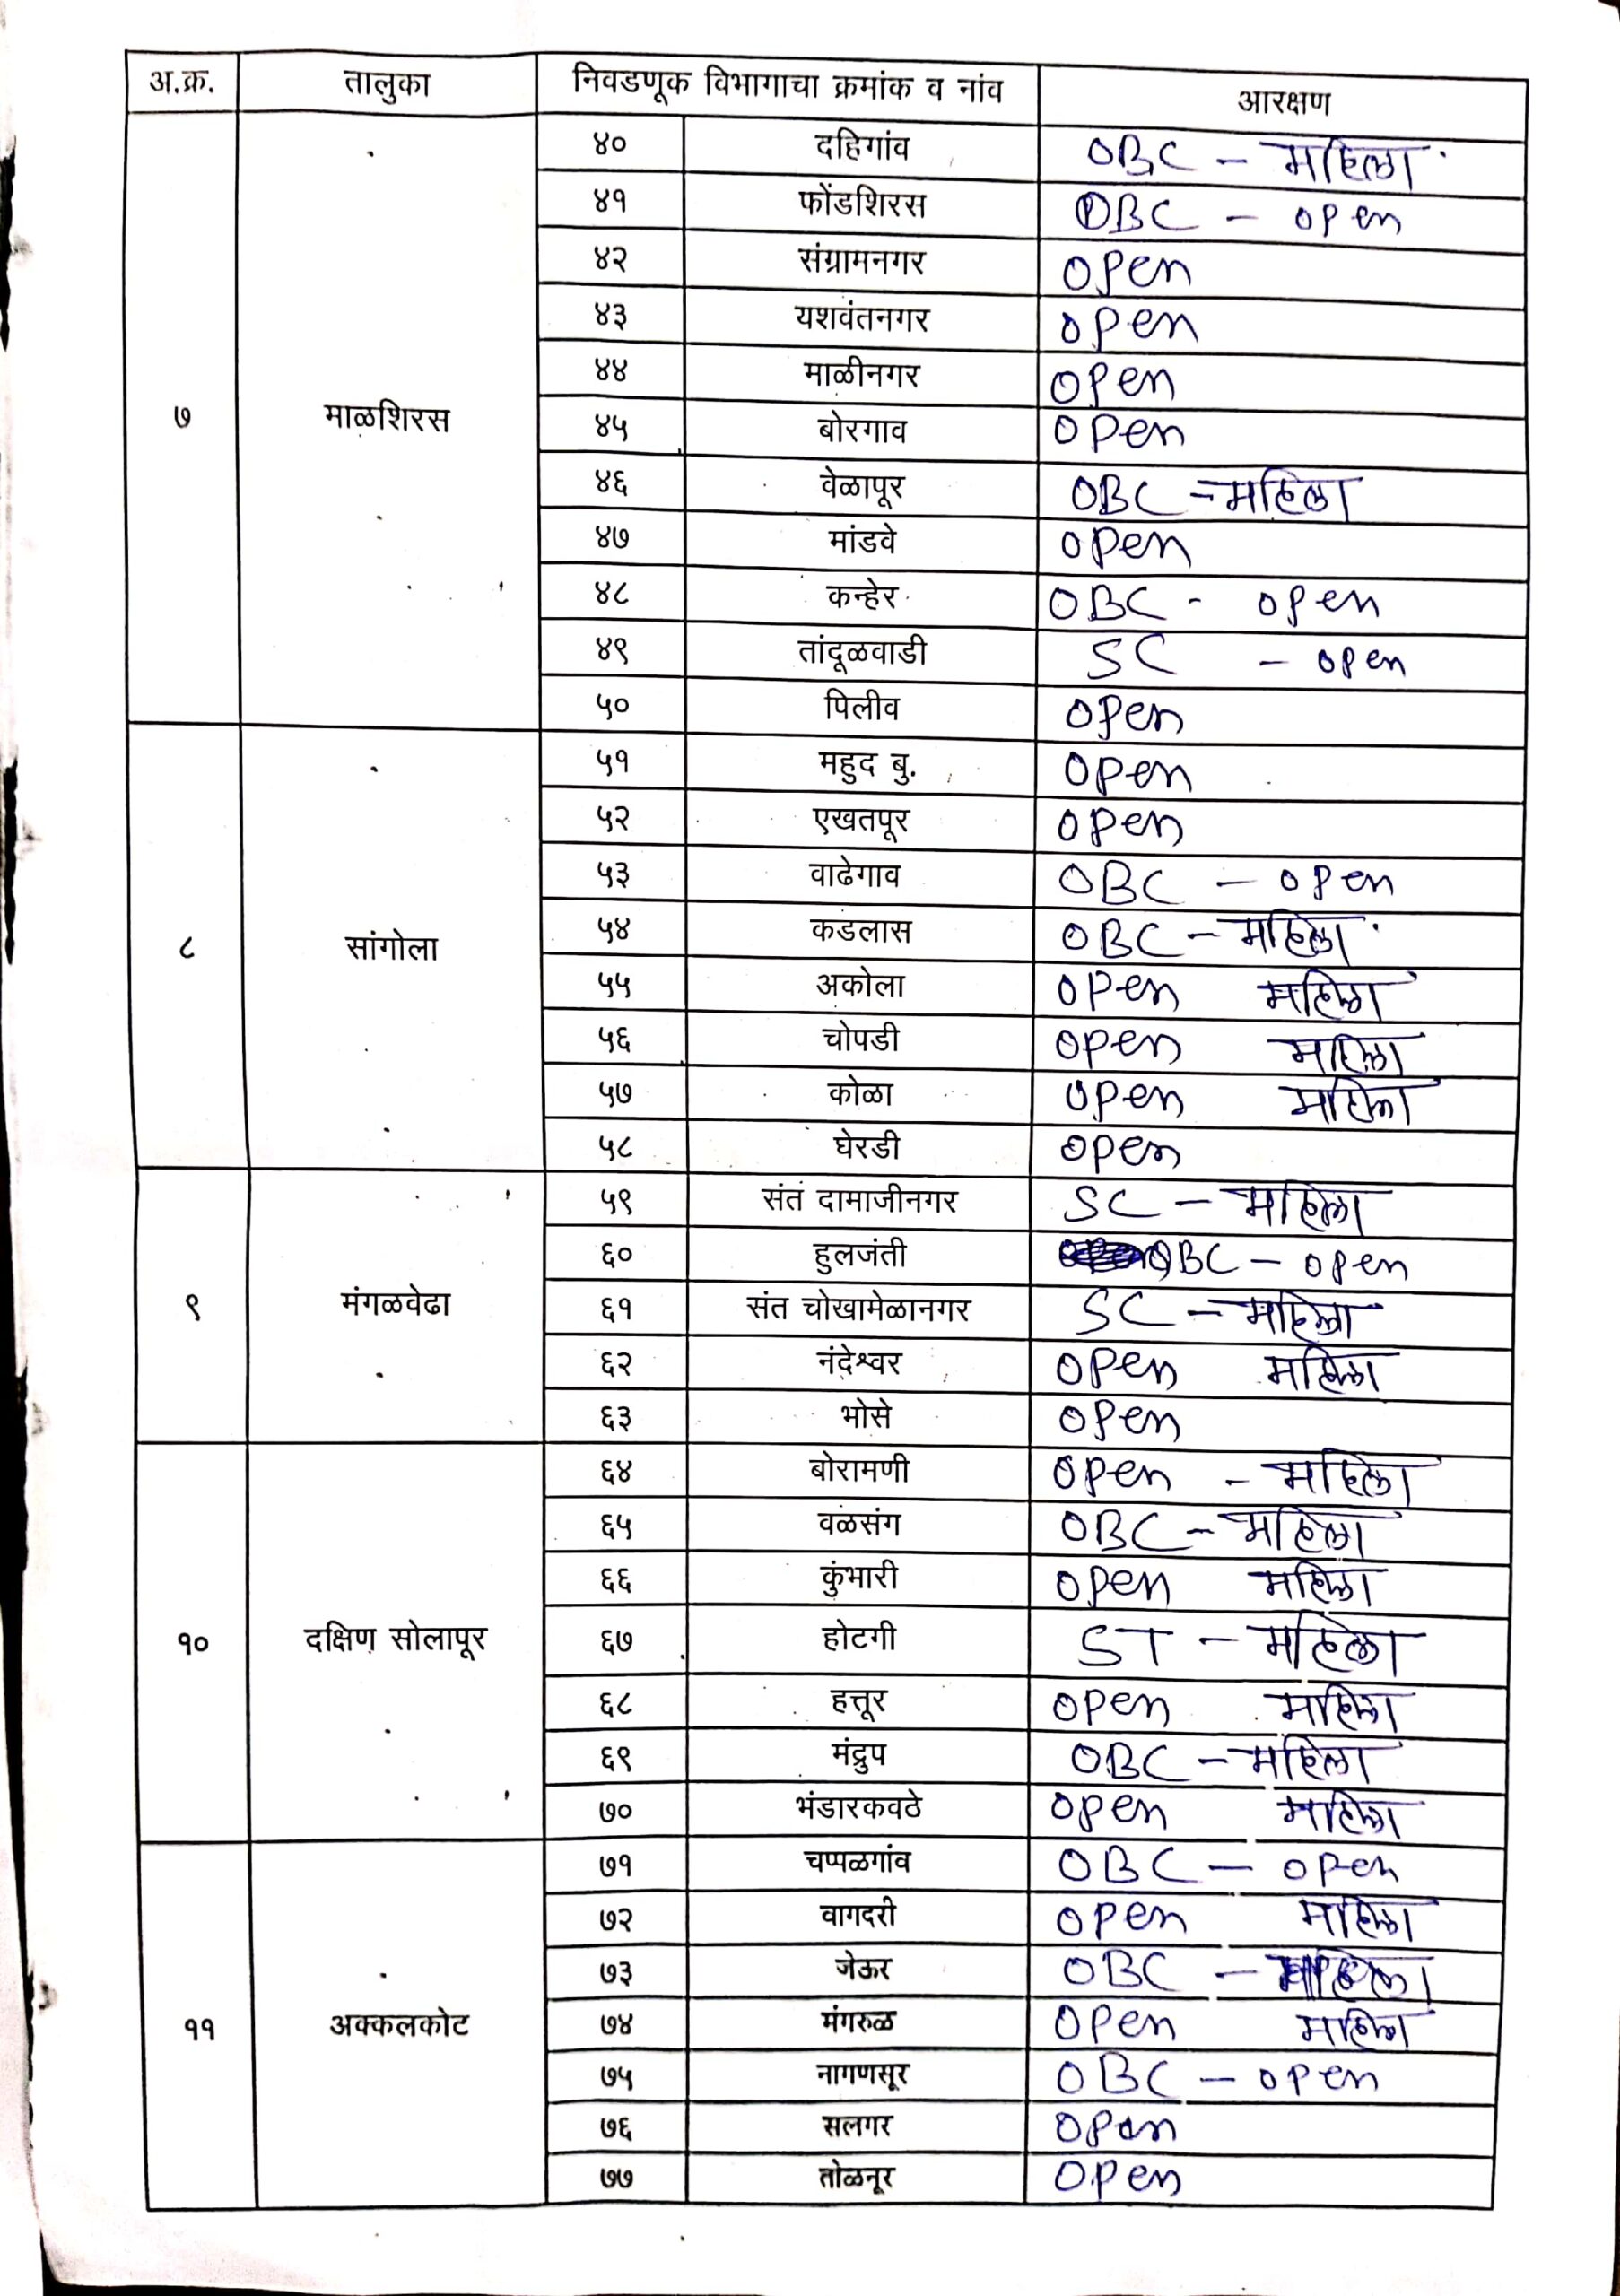 अ.क्र. तालुका निवडणूक विभागाचा क्रमांक व नांव आरक्षण
४० दहिगांव OBC - महिला
४१ फोंडशिरस OBC - open
४२ संग्रामनगर open
४३ यशवंतनगर open
४४ माळीनगर open
७ माळशिरस ४५ बोरगाव open
४६ वेळापूर OBC - महिला
४७ मांडवे open
४८ कन्हेर OBC - open
४९ तांदूळवाडी SC - open
५० पिलीव open
५१ महुद बु. open
५२ एखतपूर open
५३ वाढेगाव OBC - open
८ सांगोला ५४ कडलास OBC - महिला
५५ अकोला open महिला
५६ चोपडी open महिला
५७ कोळा open महिला
५८ घेरडी open
५९ संत दामाजीनगर SC - महिला
६० हुलजंती OBC - open
९ मंगळवेढा ६१ संत चोखामेळानगर SC - महिला
६२ नंदेश्वर open महिला
६३ भोसे open
६४ बोरामणी open - महिला
६५ वळसंग OBC - महिला
६६ कुंभारी open महिला
१० दक्षिण सोलापूर ६७ होटगी ST - महिला
६८ हत्तूर open महिला
६९ मंद्रुप OBC - महिला
७० भंडारकवठे open महिला
७१ चप्पळगांव OBC - open
७२ वागदरी open महिला
७३ जेऊर OBC - महिला
११ अक्कलकोट ७४ मंगरुळ open महिला
७५ नागणसूर OBC - open
७६ सलगर open
७७ तोळनूर open